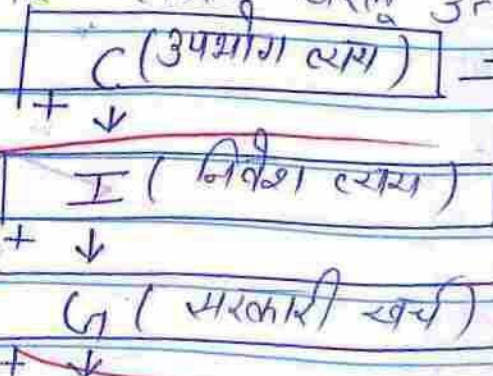 C (उपभोग व्यय) =
+ ↓
I ( निवेश व्यय )
+ ↓
G ( सरकारी खर्च )
+ ↓